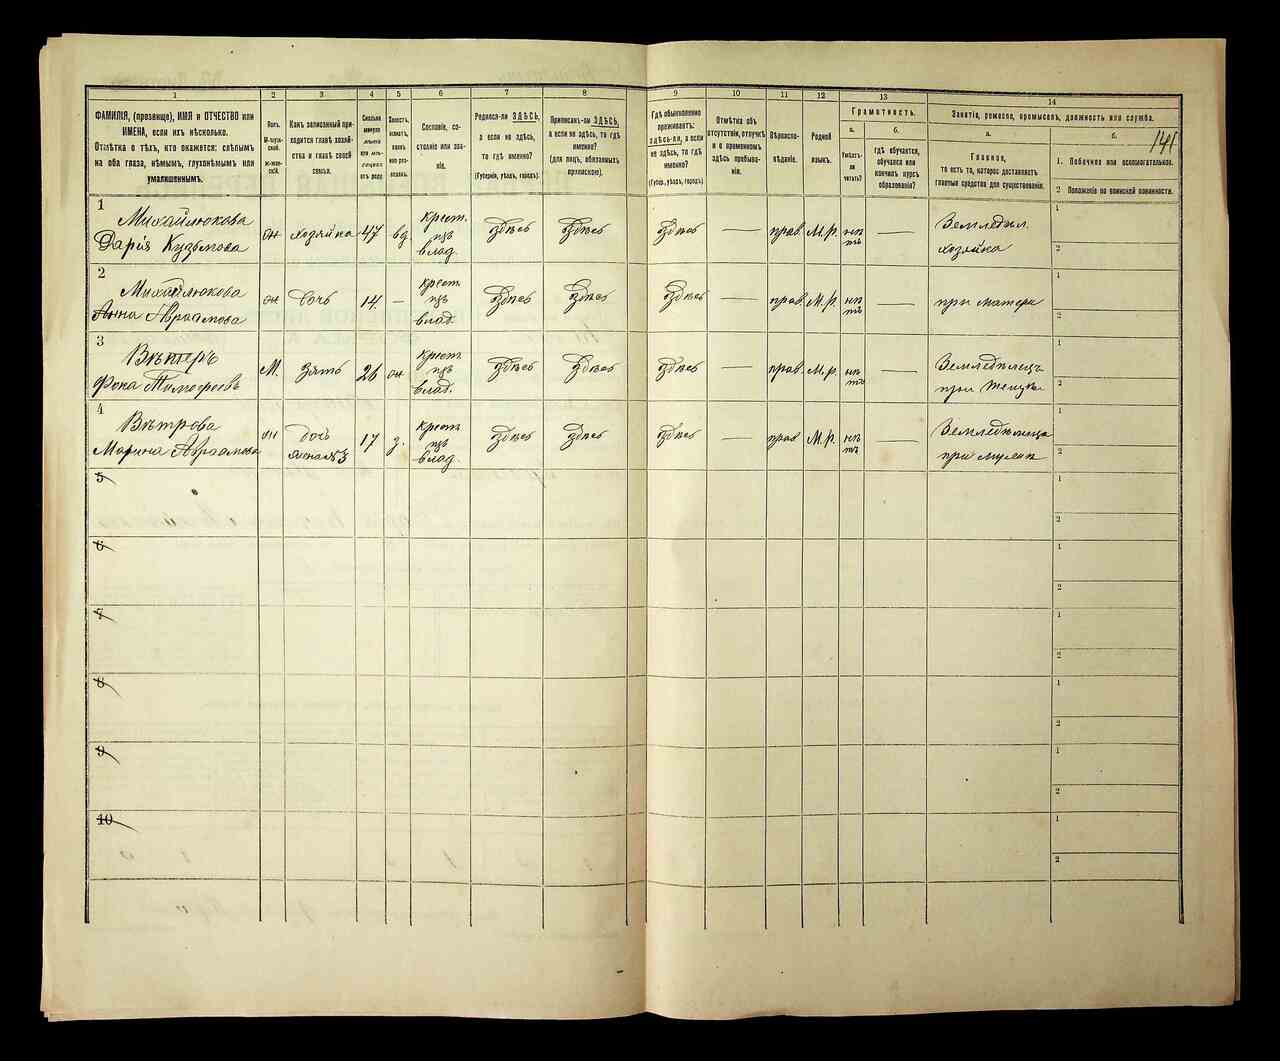 1
2
3
4
5
6
7
8
9
10
11
12
13
14
ФАМИЛІЯ, (прозвище), ИМЯ и ОТЧЕСТВО или
ИМЕНА, если ихъ нѣсколько.
Отмѣтка о тѣхъ, кто окажется: слѣпымъ
на оба глаза, нѣмымъ, глухонѣмымъ или
умалишеннымъ.
Полъ.
М-мужской.
Ж-женскій.
Какъ записанный при-
ходится главѣ хозяй-
ства и главѣ своей
семьи.
Сколько
минуло
лѣтъ
или мѣ-
сяцевъ
отъ роду
Холостъ,
женатъ,
вдовъ
или раз-
веденъ.
Сословіе, со-
стояніе или зва-
ніе.
Родился-ли ЗДѢСЬ,
а если не здѣсь,
то гдѣ именно?
(Губернія, уѣздъ, городъ).
Приписанъ-ли ЗДѢСЬ,
а если не здѣсь, то гдѣ
именно?
(для лицъ, обязанныхъ
припискою).
Гдѣ обыкновенно
проживаетъ:
здѣсь-ли, а если
не здѣсь, то гдѣ
именно?
(Губер., уѣздъ, городъ)
Отмѣтка объ
отсутствіи, отлучкѣ
и о временномъ
здѣсь пребыва-
ніи.
Вѣроиспо-
вѣданіе.
Родной
языкъ.
Грамотность.
а.
Умѣетъ-
ли
читать?
б.
Гдѣ обучается,
обучался или
кончилъ курсъ
образованія?
Занятіе, ремесло, промыселъ, должность или служба.
а.
Главное,
то есть то, которое доставляетъ
главныя средства для существованія.
б.
141
1. Побочное или вспомогательное.
2 Положеніе по воинской повинности.
1
Михайлюкова
Дарія Кузьмова
ж
хозяйка
47
вд
крест.
изъ
влад.
здѣсь
здѣсь
здѣсь
—
прав.
М.р.
нѣ
тъ
—
Земледѣл.
хозяйка
1
2
2
Михайлюкова
Анна Авраамова
ж
дочь
14
—
крест
изъ
влад.
здѣсь
здѣсь
здѣсь
—
прав.
М.р.
нѣ
тъ
—
при матери
1
2
3
Вѣтеръ
Фока Тимофеевъ
М.
зять
26
ж
крест
изъ
влад.
здѣсь
здѣсь
здѣсь
—
прав.
М.р.
нѣ
тъ
—
Земледѣлецъ
1
2
4
Вѣтрова
Марина Авраамова
ж
дочь
жена №3
17
з.
крест
изъ
влад.
здѣсь
здѣсь
здѣсь
—
прав
М.р.
нѣ
тъ
—
Земледѣлица
при мужѣ
1
2
5
1
2
6
1
2
7
1
2
8
1
2
9
1
2
10
1
2